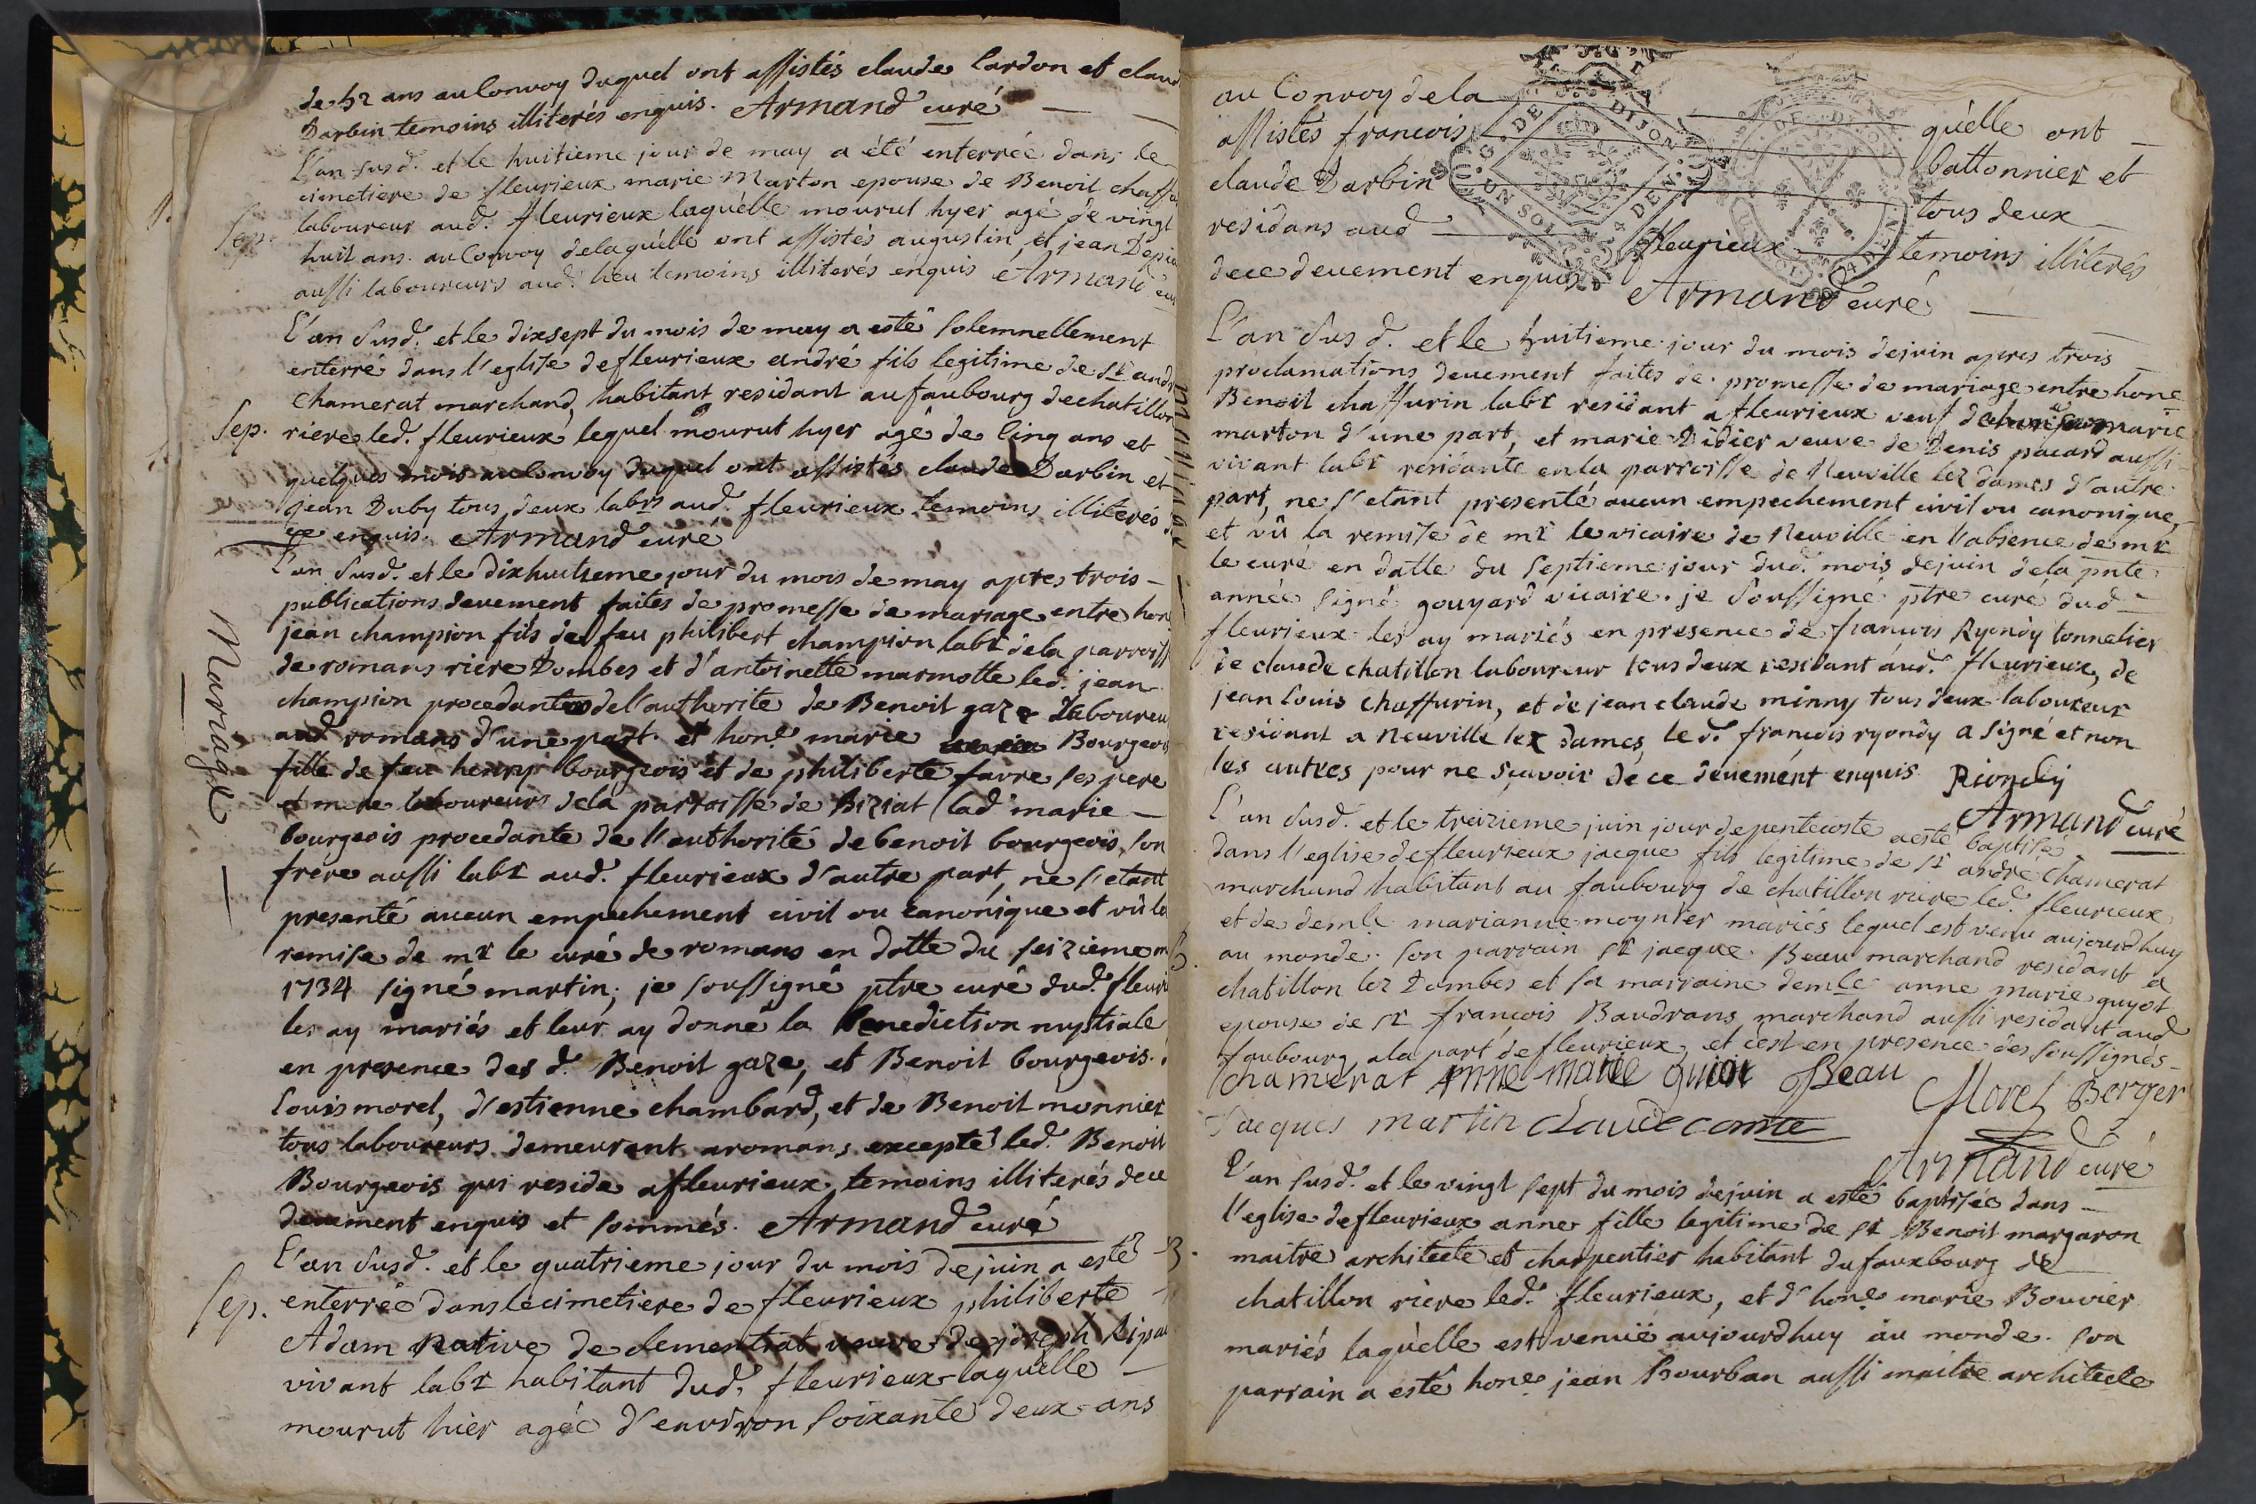 de 52 ans au Convoy duquel ont assistés claude Cardon et claud
Darbin temoins illiterés enquis. Armand curé
L'an susd. et le huitieme jour de may a été enterrée dans le
cimetiere de fleurieux marie Marton epouse de Benoit chaffu
Sep. laboureur aud. fleurieux laquelle mourut hyer agé de vingt
huit ans. au Convoy delaquelle ont assistés augustin et jean
aussi laboureurs aud. lieu temoins illiterés enquis Armand cur
L'an susd. et le dixsept du mois de may a esté solemnellement
enterré dans l'eglise de fleurieux andré fils legitime de Sr andr
Chamerat marchand, habitant residant au faubourg dechatillon
Sep. riere led. fleurieux lequel mourut hyer agé de Cinq ans et
quelques mois au Convoy duquel ont assistés claude Darbin et
jean Duby tous deux labrs aud. fleurieux temoins illiterés
enquis. Armand curé
Mariage
L'an susd. et le dixhuitieme jour du mois de may apres trois
publications devement faites de promesse de mariage entre hon
jean champion fils de feu philibert champion labr dela parroiss
de romans riere Dombes et d'antoinette marmotte led. jean
champion procedant de l'authorité de Benoit gaze Laboureu
aud romans d'une part. et hone marie Bourgeois
fille de feu henry bourgeois et de philiberte favre ses pere
et mere laboureurs dela parroisse de Biziat lad marie
bourgeois procedante de l'authorité de benoit bourgeois son
frere aussi labr aud. fleurieux d'autre part, ne s'etant
presenté aucun empechement civil ou canonique et vû la
remise de mr le curé de romans en datte du seizieme m
1734 signé martin; je soussigné ptre curé dud. fleuri
les ay mariés et leur ay donné la Benediction nuptiale
en presence des d. Benoit gaze, et Benoit bourgeois.
Louis morel, d'estienne chambard, et de Benoit monnier
tous laboureurs demeurant a romans excepté led. Benoit
Bourgeois qui reside a fleurieux temoins illiterés dece
devement enquis et sommés. Armand curé
L'an susd. et le quatrieme jour du mois dejuin a esté
Sep. enterrée dans lecimetiere de fleurieux philiberte
Adam Native de clementiat veuve de joseph Ripau
vivant labr habitant dud. fleurieux laquelle
mourut hier agée d'environ soixante deux ans
au Convoy dela quelle ont
assistés francois battonnier et
claude Darbin tous deux
residans aud fleurieux temoins illiterés
dece devement enquis Armand curé
G. DE DIJON
UN SOL 4 DEN.
Mariage
L'an susd. et le huitieme jour du mois dejuin apres trois
proclamations devement faites de promesse de mariage entre hone
Benoit chaffurin labr residant a fleurieux veuf de marie
marton d'une part, et marie Didier veuve de Denis pacard aussi
vivant labr residante en la parroisse de Neuville lez dames d'autre
part, ne s'etant presenté aucun empechement civil ou canonique,
et vû la remise de mr le vicaire de Neuville en l'absence de mr
le curé en datte du septieme jour dud. mois dejuin dela pnte
année signé gouyard vicaire. je soussigné ptre curé dud
fleurieux les ay mariés en presence de francois Ryondy tonnelier
de claude chatillon laboureur tous deux residant aud. fleurieux, de
jean Louis chaffurin, et de jean claude minny tous deux laboureur
residant a Neuville lez dames, led. francois ryondy a signé et non
les autres pour ne sçavoir de ce devement enquis. Riondy
Armand curé
L'an susd. et le treizieme juin jour depentecoste a esté baptisé
dans l'eglise de fleurieux jacque fils legitime de Sr andré Chamerat
marchand habitant au faubourg de chatillon riere led. fleurieux
et de demle marianne moynier mariés lequel est venu aujourdhuy
B. au monde. son parrain Sr jacque Beau marchand residant a
chatillon lez Dombes et sa marraine demle anne marie guyot
epouse de Sr francois Baudrans marchand aussi residant aud
faubourg ala part de fleurieux, et c'est en presence des soussignés
Chamerat Anne marie guiot JBeau
Morel Berger
Jacques martin Claude comte
Armand curé
L'an susd. et le vingt sept du mois dejuin a esté baptisée dans
l'eglise de fleurieux anne fille legitime de Sr Benoit margaron
B. maitre architecte et charpentier habitant du fauxbourg de
chatillon riere led. fleurieux, et d'hone marie Bouvier
mariés laquelle est venuë aujourdhuy au monde. son
parrain a esté hone jean Bourban aussi maitre architecte